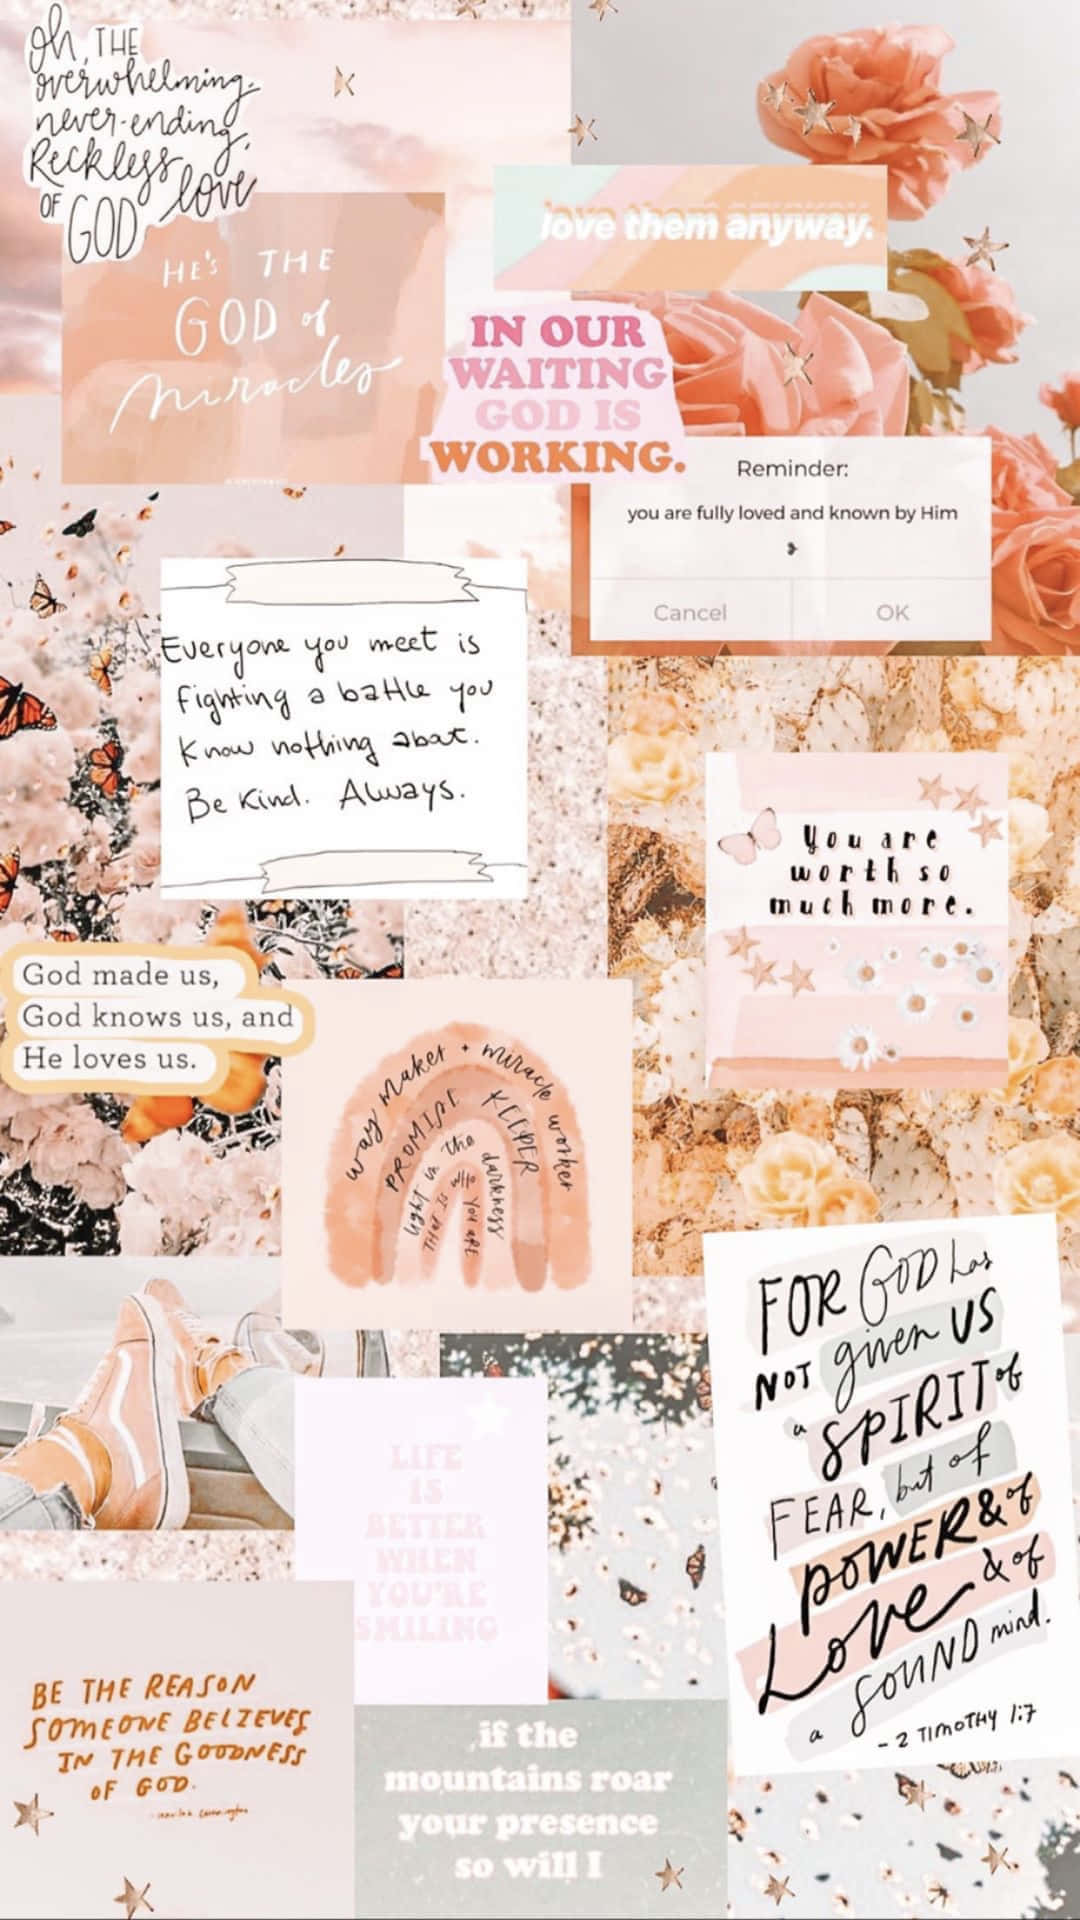 oh, THE
overwhelming,
never-ending,
Reckless
OF GOD love
HE'S THE
GOD of
miracles
love them anyway.
IN OUR
WAITING
GOD IS
WORKING.
Reminder:
you are fully loved and known by Him
Cancel OK
Everyone you meet is
fighting a battle you
know nothing about.
Be kind. Always.
You are
worth so
much more.
God made us,
God knows us, and
He loves us.
way maker + miracle worker
PROMISE KEEPER
light in the darkness
THAT IS WHO YOU ARE
FOR GOD has
NOT given US
a SPIRIT of
FEAR, but of
POWER & of
Love & of
a SOUND mind.
- 2 TIMOTHY 1:7
LIFE
IS
BETTER
WHEN
YOU'RE
SMILING
BE THE REASON
SOMEONE BELIEVES
IN THE GOODNESS
OF GOD.
if the
mountains roar
your presence
so will I